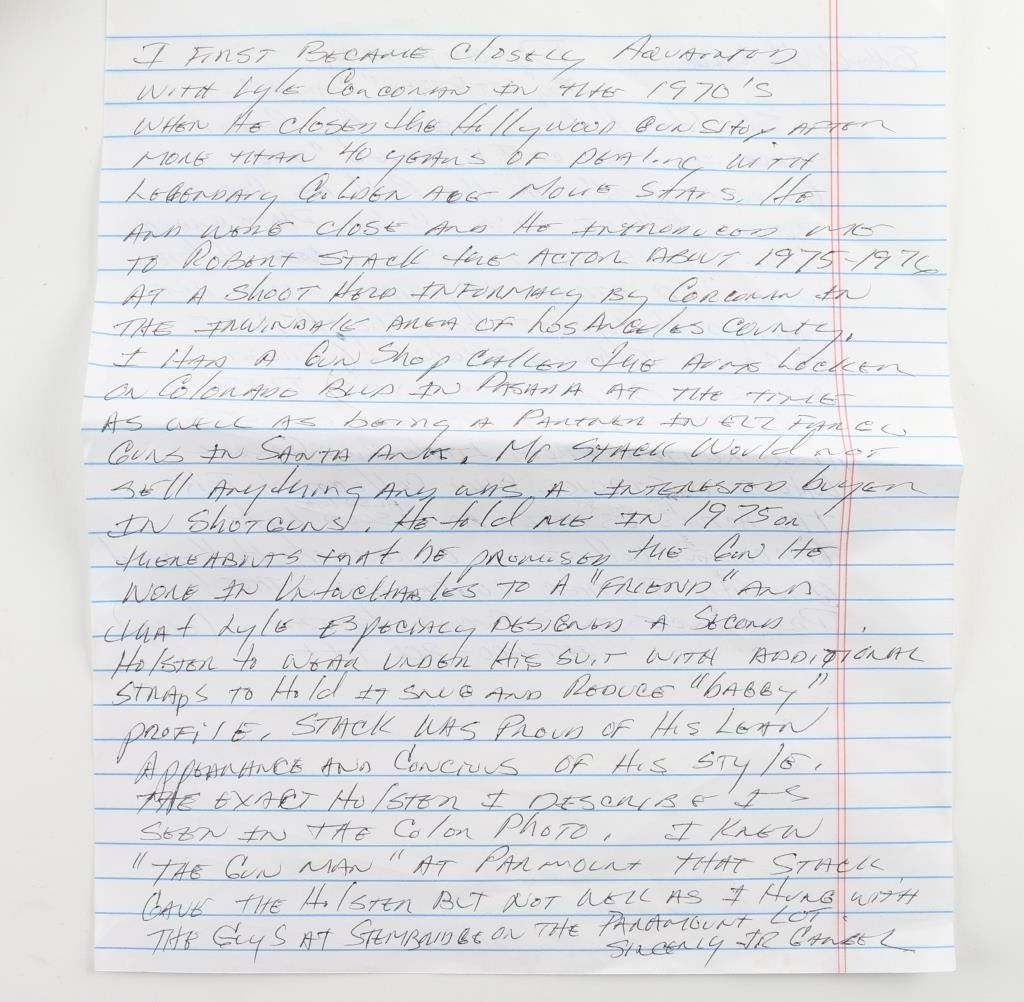 I FIRST BECAME CLOSELY AQUAINTED
WITH LYLE CORCORAN IN THE 1970'S
WHEN HE CLOSED the HOllYWOOD GUN SHOP AFTER
MORE THAN 40 YEARS OF DEALING WITH
LEGENDARY GOLDEN AGE MOVIE STARS. HE
AND WERE CLOSE AND HE INTRODUCED ME
TO ROBERT STACK the ACTOR ABUT 1975-1976
AT A SHOOT HELD INFORMALY BY CORCORAN IN
THE IRWINDALE AREA OF LOS ANGELES COUNTY.
I HAD A GUN SHOP CALLED the ARMS LOCKER
ON COLORADO BLVD IN PASANA AT THE TIME
AS WELL AS BEING A PARTNER IN
GUNS IN SANTA ANA. MR STACK WOULD NOT
SELL ANYTHING ANY WAS A INTERESTED BUYER
IN SHOTGUNS. HE told ME IN 1975 OR
THEREABUTS THAT HE PROMISED the GUN HE
WORE IN UNTOUCHABLES TO A "FRIEND" AND
that LYLE ESPECIALY DESIGNED A SECOND
HOLSTER to WEAR UNDER HIS SUIT WITH ADDITIONAL
STRAPS TO HOLD IT SNUG AND REDUCE "BAGGY"
PROFILE. STACK WAS PROUD OF HIS LEAN
APPEARANCE AND CONCIOUS OF HIS STYLE.
THE EXACT HOLSTER I DESCRIBE IS
SEEN IN THE COLOR PHOTO. I KNEW
"THE GUN MAN" AT PARMOUNT THAT STACK
GAVE THE HOLSTER BUT NOT WELL AS I HUNG WITH
THE GUYS AT STEMBRIDGE ON THE PARAMOUNT LOT.
SINCERLY JR